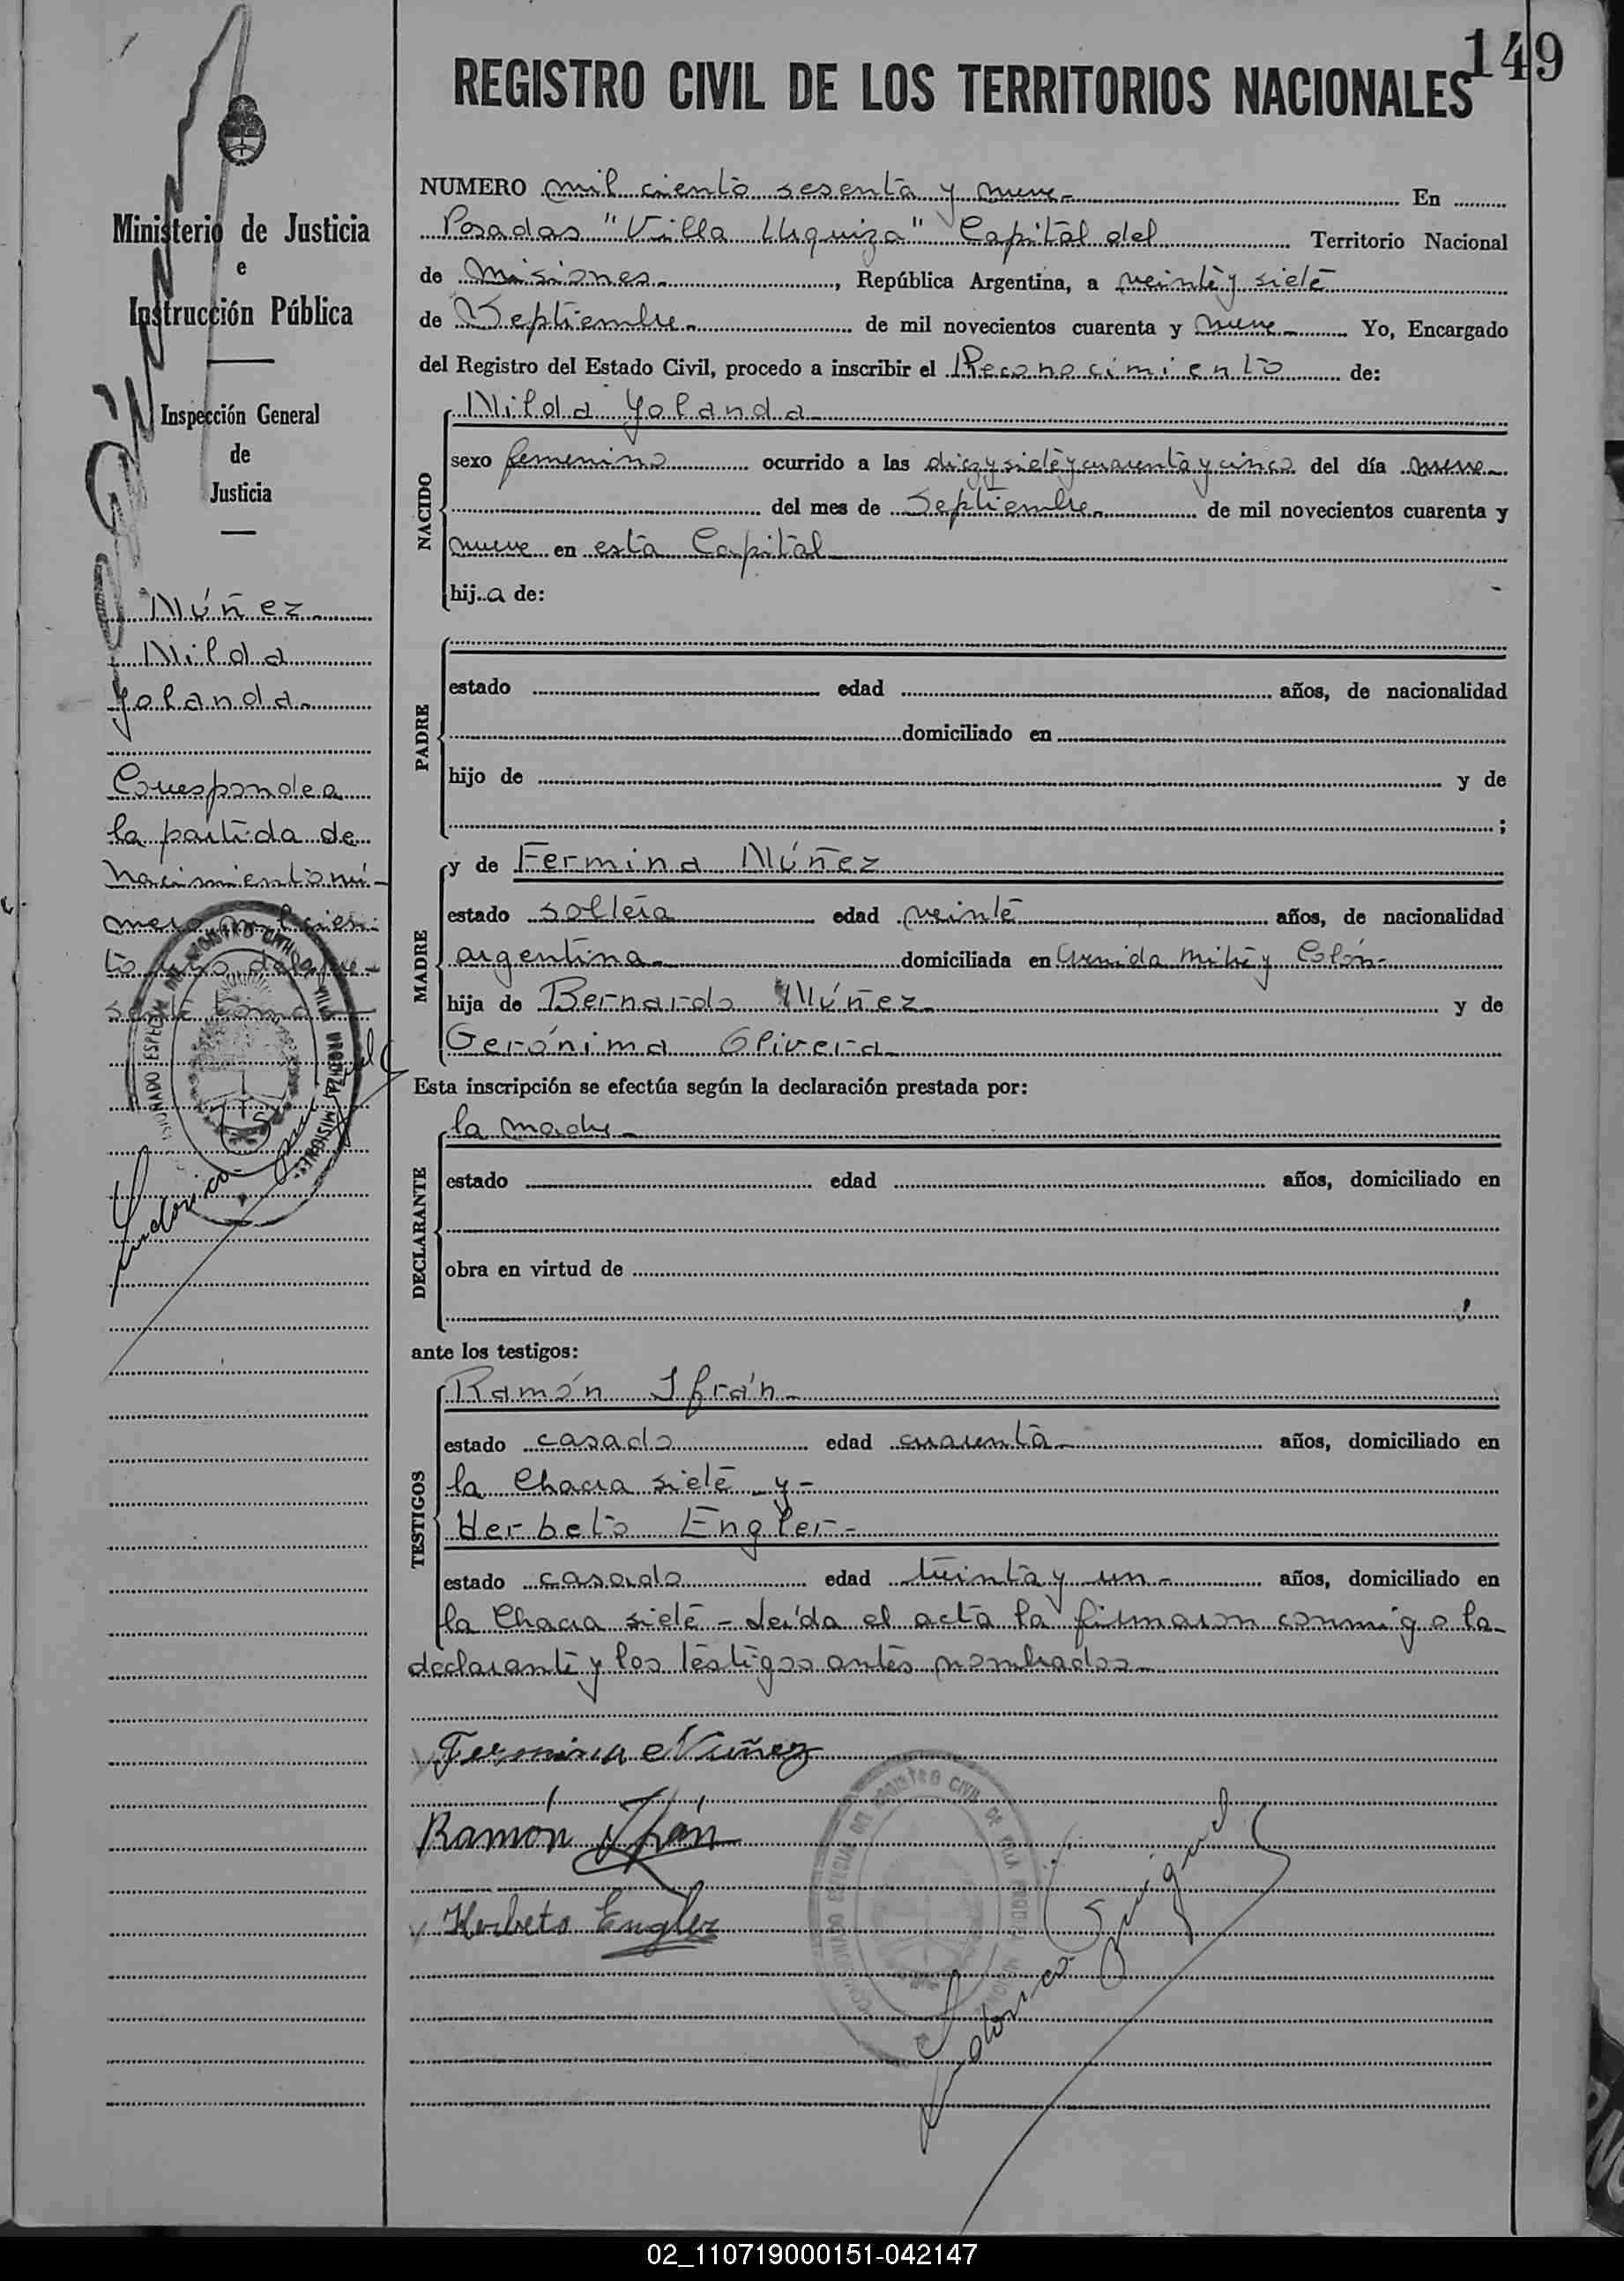 149
REGISTRO CIVIL DE LOS TERRITORIOS NACIONALES
Ministerio de Justicia
e
Instrucción Pública
Inspección General
de
Justicia
Núñez
Nilda
Yolanda.
Corresponde a
la partida de
nacimiento nú-
mero mil cien-
to
sente tomo
NUMERO mil ciento sesenta y nueve- En
Posadas "Villa Urquiza" Capital del Territorio Nacional
de Misiones. , República Argentina, a veinte y siete
de Septiembre- de mil novecientos cuarenta y nueve- Yo, Encargado
del Registro del Estado Civil, procedo a inscribir el Reconocimiento de:
NACIDO
Nilda Yolanda
sexo femenino ocurrido a las diez y siete y cuarenta y cinco del día nueve
del mes de Septiembre- de mil novecientos cuarenta y
nueve en esta Capital
hij a de:
PADRE
estado edad años, de nacionalidad
domiciliado en
hijo de y de
;
MADRE
y de Fermina Núñez
estado soltera edad veinte años, de nacionalidad
argentina- domiciliada en Avenida Mitre y Colón-
hija de Bernardo Núñez y de
Gerónima Olivera-
Esta inscripción se efectúa según la declaración prestada por:
DECLARANTE
la madre-
estado edad años, domiciliado en
obra en virtud de
ante los testigos:
TESTIGOS
Ramón Ifrán-
estado casado edad cuarenta- años, domiciliado en
la Chacra siete y-
Herbeto Engler-
estado casado edad treinta y un- años, domiciliado en
la Chacra siete - Leída el acta la firmaron conmigo la
declarante y los testigos antes nombrados-
Fermina Núñez
Ramón Ifrán
Herbeto Engler
02_110719000151-042147